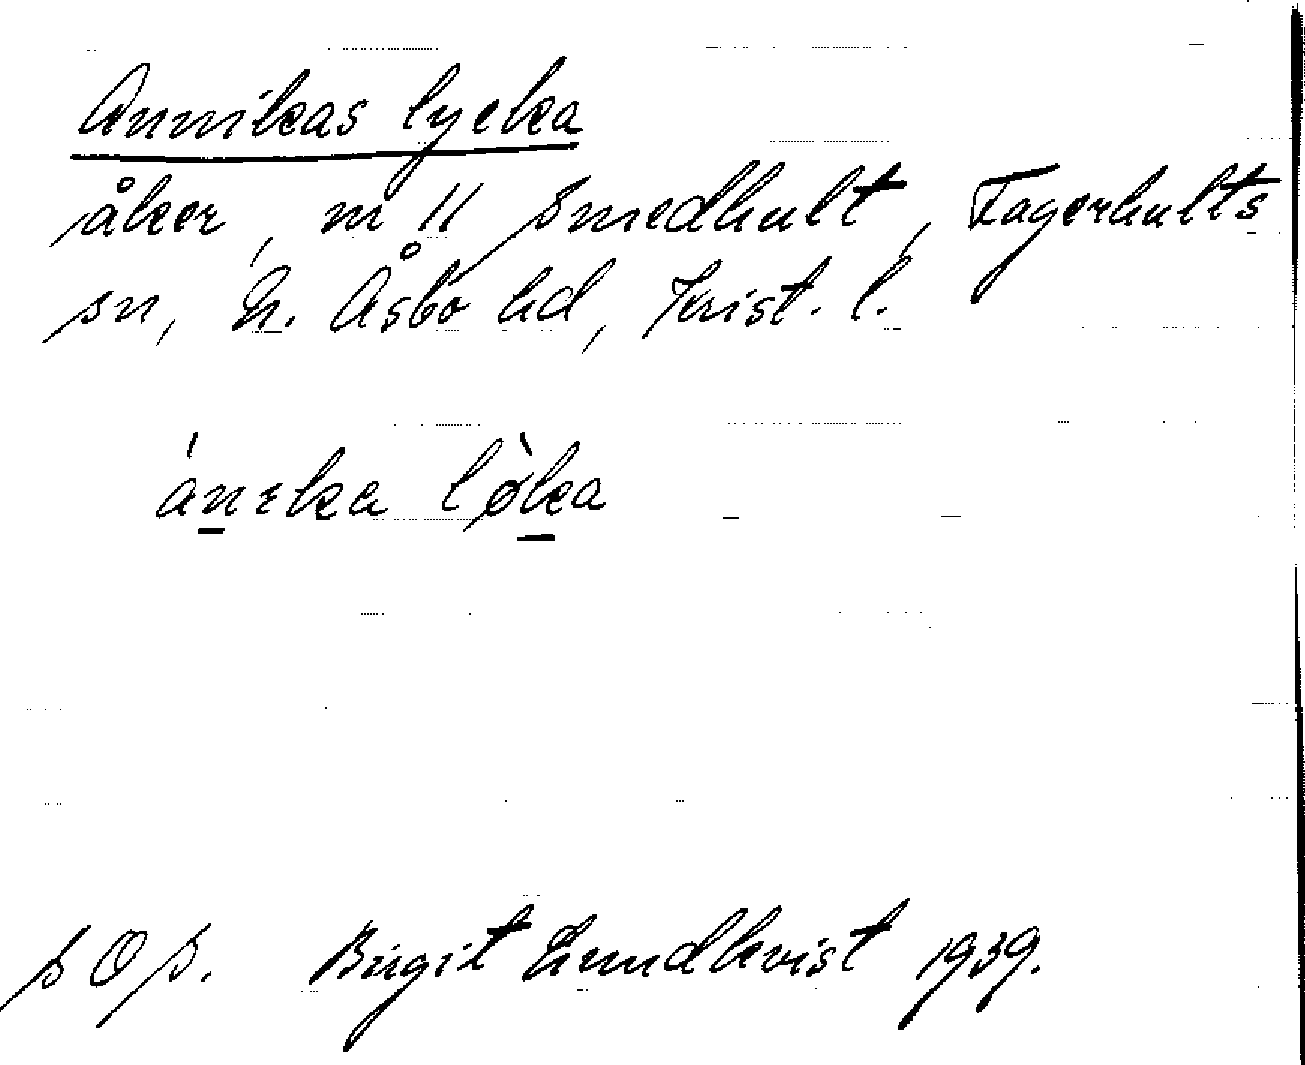 Annikas lycka
åker, m 11 Smedhult, Fagerhults
sn, N. Åsbo hd, Krist. l.
áneka løka
s O s. Birgit Lundkvist 1939.